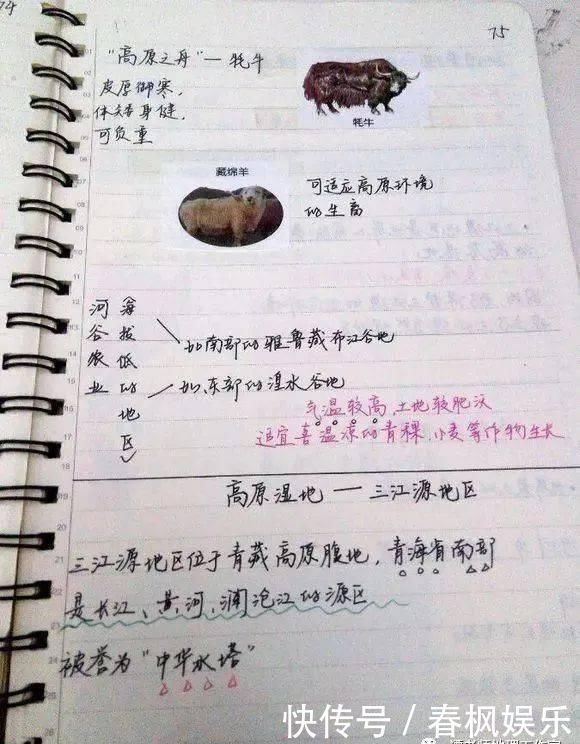 74
75
"高原之舟"— 牦牛
皮厚御寒,
体矮身健,
可负重
牦牛
藏绵羊
可适应高原环境
的生畜
河谷农业
海拔低的地区
如南部的雅鲁藏布江谷地
如东部的湟水谷地
气温较高,土地较肥沃
适宜喜温凉的青稞,小麦等作物生长
高原湿地 — 三江源地区
三江源地区位于青藏高原腹地,青海省南部
是长江、黄河、澜沧江的源区
被誉为"中华水塔"
快传号 / 春枫娱乐